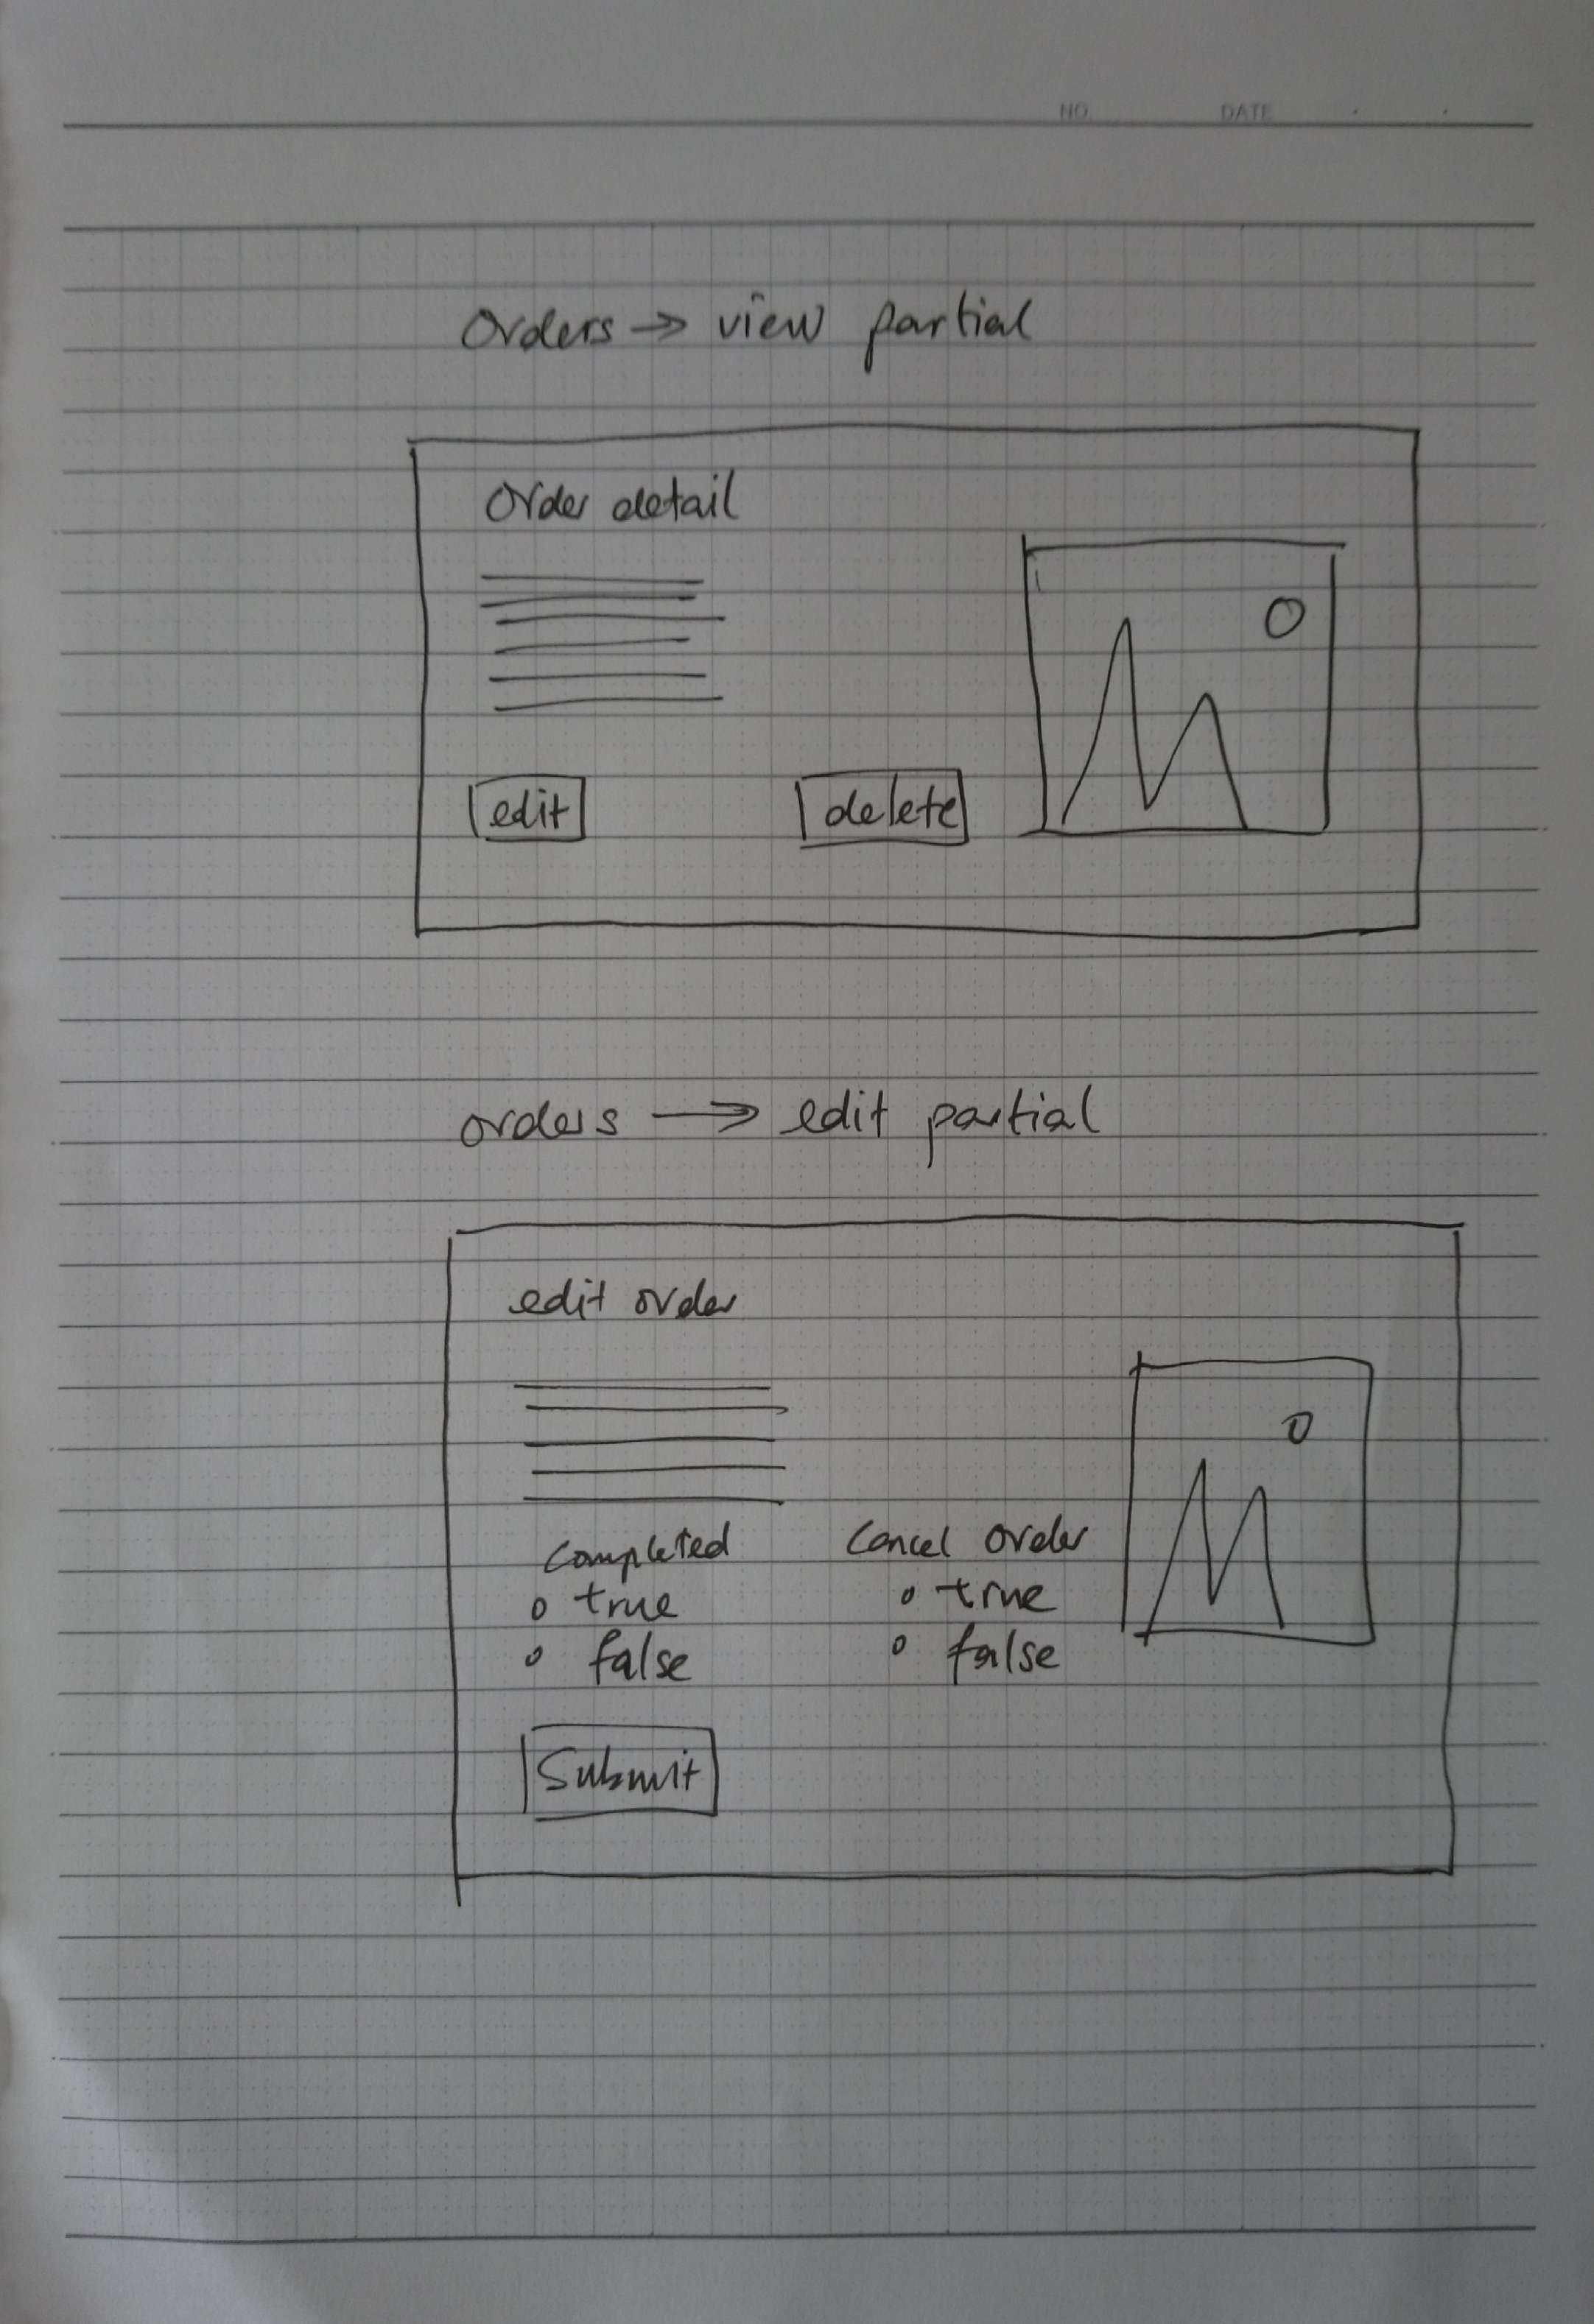 NO DATE
Orders → view partial
Order detail
edit delete
orders → edit partial
edit order
Completed Cancel order
true true
false false
Submit